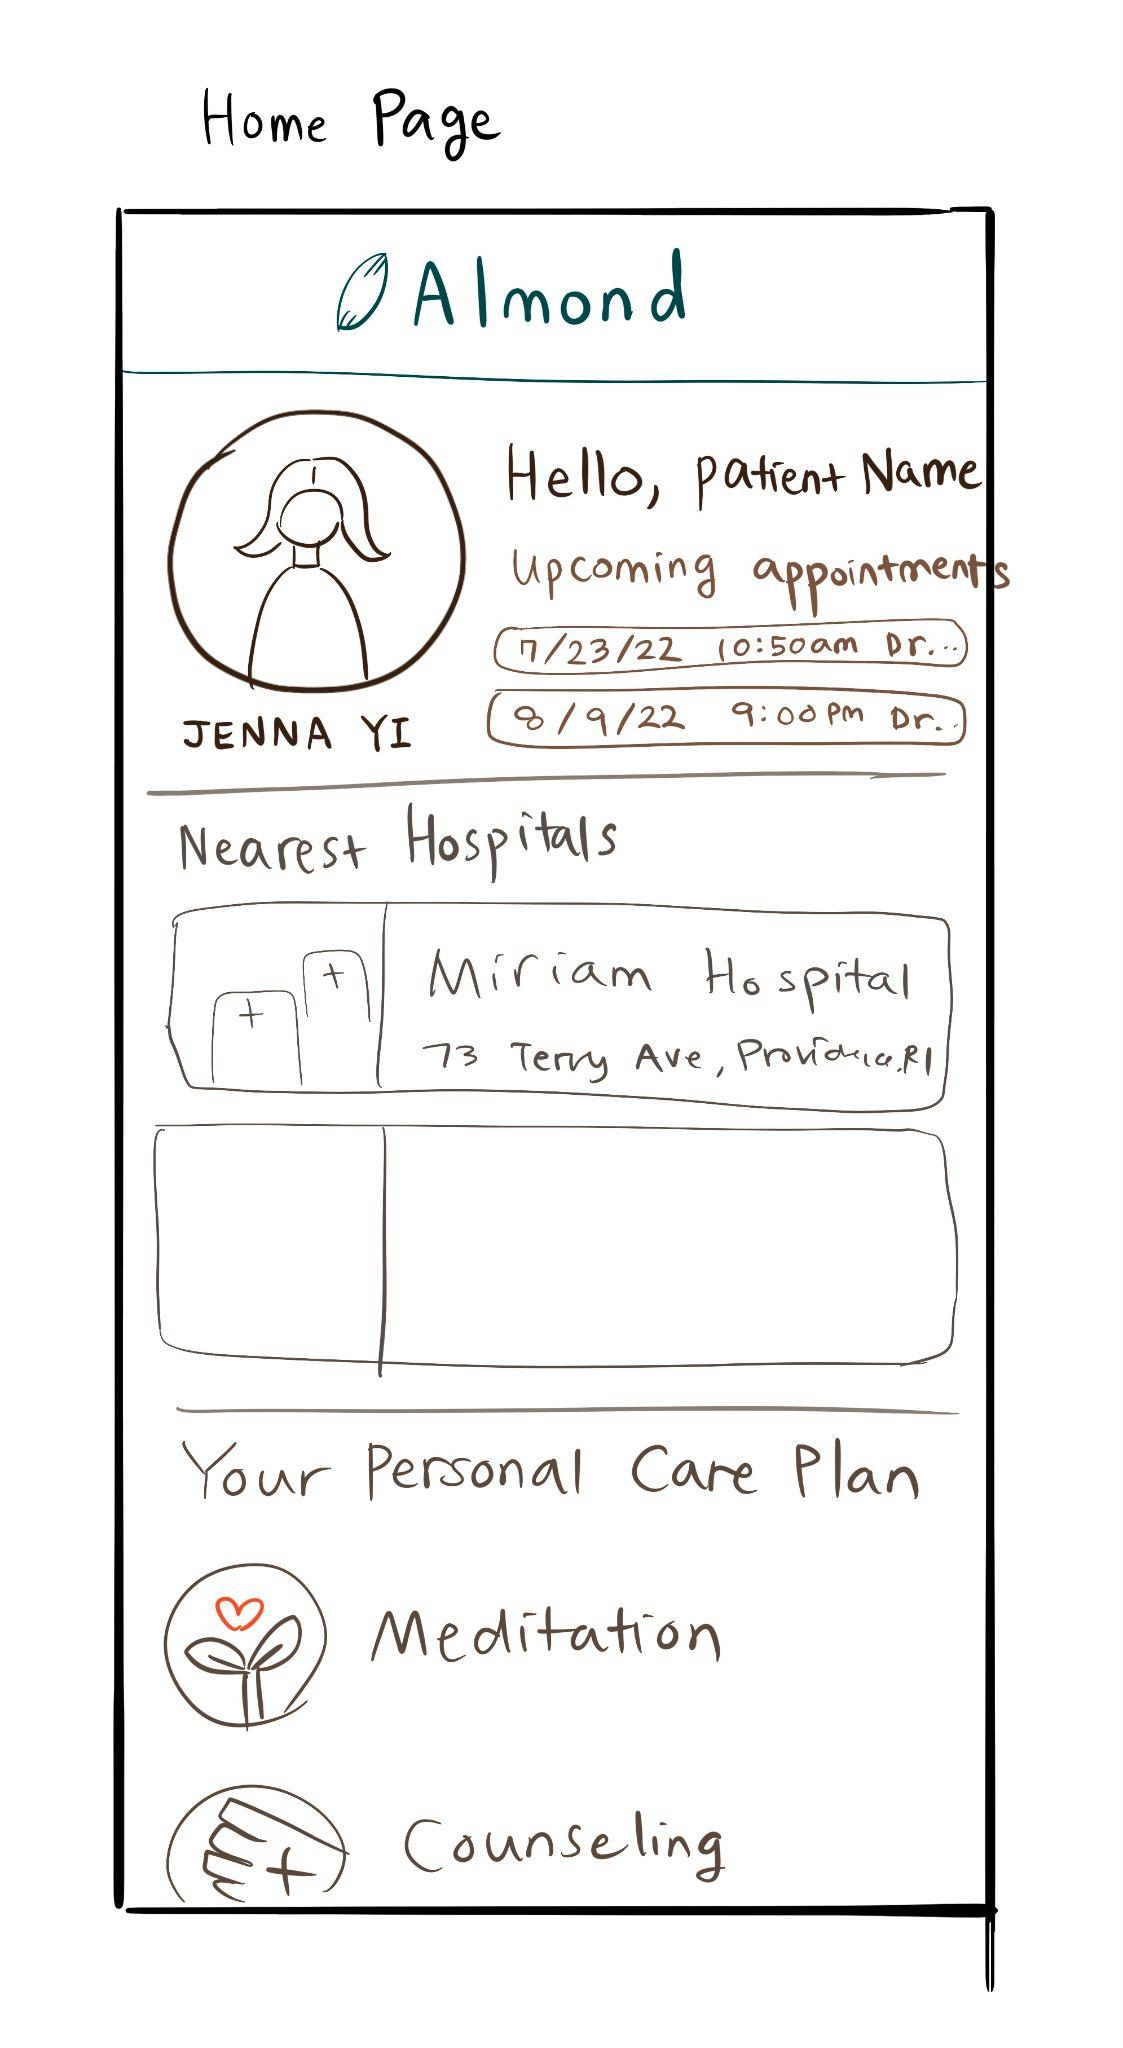 Home Page
Almond
Hello, patient Name
Upcoming appointments
7/23/22 10:50am Dr...
8/9/22 9:00pm Dr..
JENNA YI
Nearest Hospitals
+ +
Miriam Hospital
73 Terry Ave, Providence, RI
Your Personal Care Plan
Meditation
+ Counseling